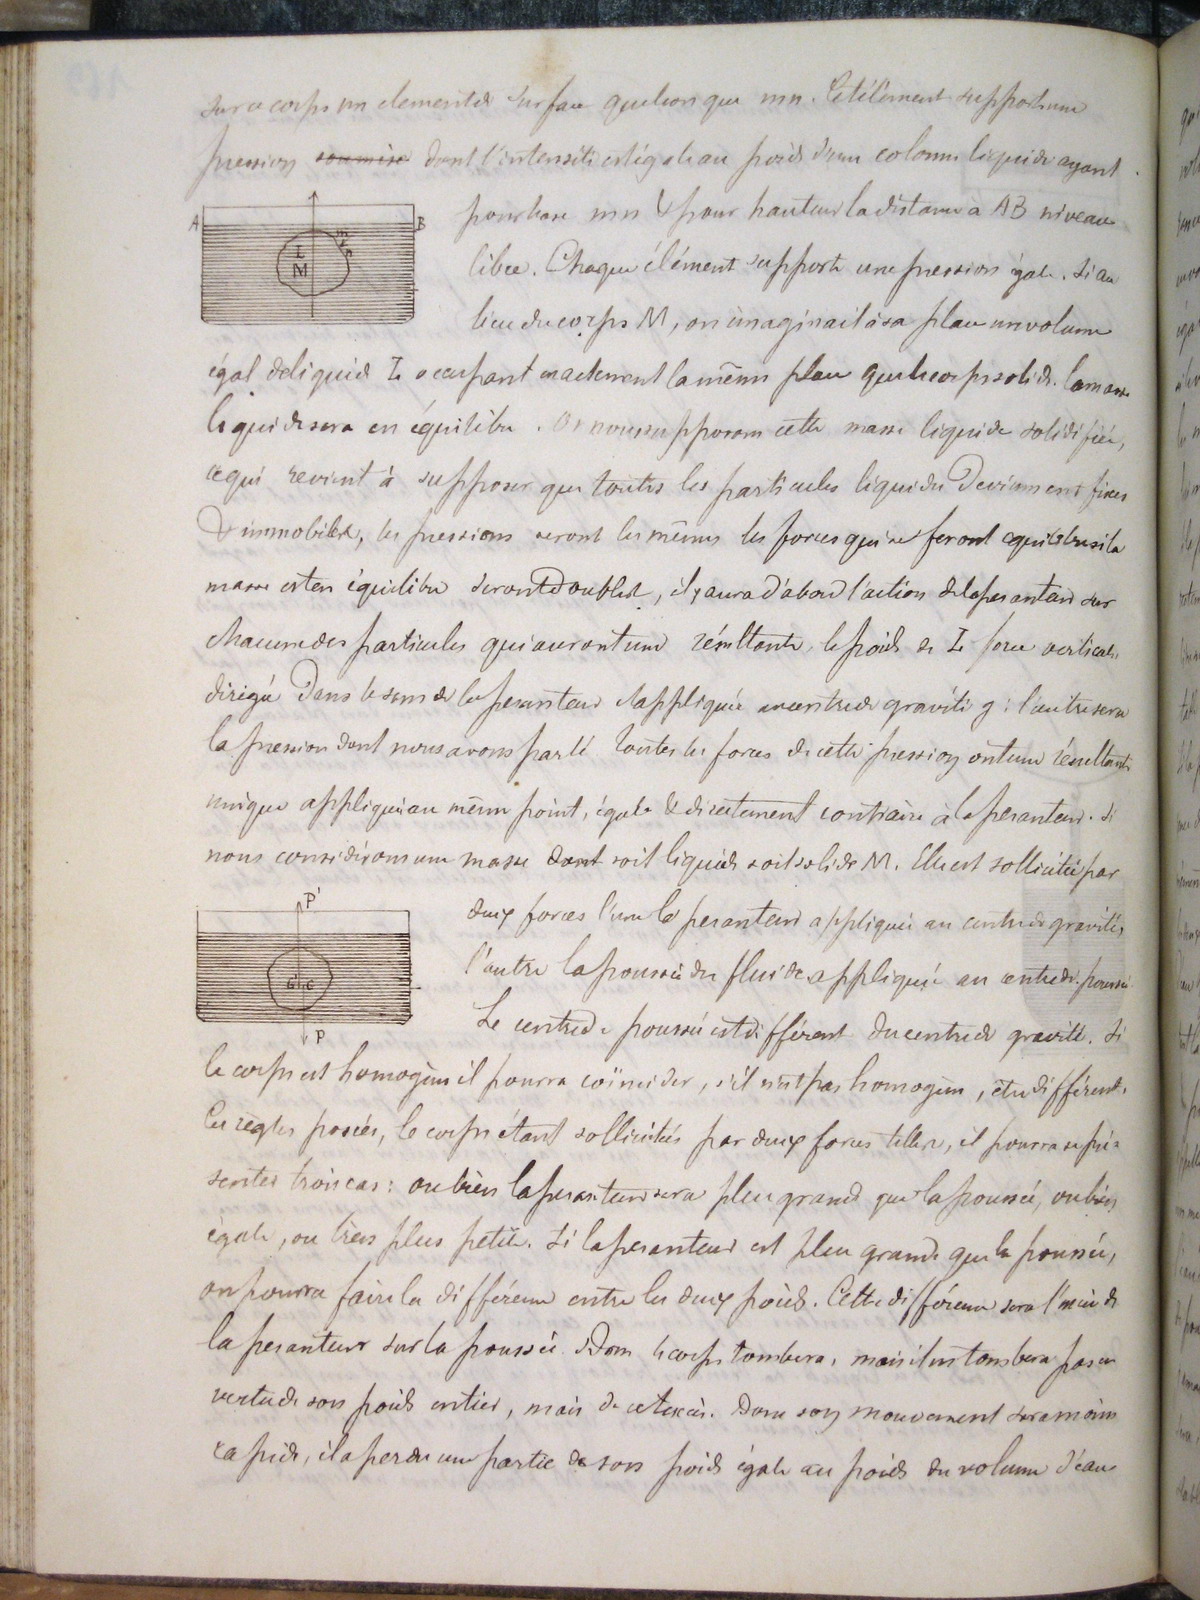 sur ce corps un element de surface quelconque mn. Cet élément supporte une
pression soumise dont l'intensité est égale au poids d'une colonne liquide ayant
A B
pour base mn & pour hauteur la distance à AB niveau
libre. Chaque élément supporte une pression égale. Si au
I
M
m
n
lieu du corps M, on imaginait à sa place un volume
égal de liquide I occupant exactement la même place que le corps solide. la masse
liquide sera en équilibre. Or nous supposons cette masse liquide solidifiée,
ce qui revient à supposer que toutes les particules liquides deviennent fixes
& immobiles, les pressions seront les mêmes les forces qui se feront equilibre si la
masse est en équilibre seront doubles, il y aura d'abord l'action de la pesanteur sur
chacune des particules qui auront une résultante, le poids de I force verticale
dirigée dans le sens de la pesanteur & appliquée au centre de gravité g : l'autre sera
la pression dont nous avons parlé. Toutes les forces de cette pression ont une résultante
unique appliquée au même point, égale & directement contraire à la pesanteur. Si
nous considérons une masse dont soit liquide soit solide M. Elle est sollicitée par
P'
deux forces l'une la pesanteur appliquée au centre de gravité,
l'autre la poussée du fluide appliquée au centre de poussée
G' G
Le centre de poussée est différent du centre de gravité. Si
P
le corps est homogène il pourra coïncider, s'il n'est pas homogène, être différent.
Ces règles posées, le corps étant sollicité par deux forces telles, il pourra se pré-
senter trois cas : ou bien la pesanteur sera plus grande que la poussée, ou bien
égale, ou bien plus petite. Si la pesanteur est plus grande que la poussée,
on pourra faire la différence entre les deux poids. Cette différence sera l'excès de
la pesanteur sur la poussée. Donc le corps tombera, mais il ne tombera pas en
vertu de son poids entier, mais de cet excès. Donc son mouvement sera moins
rapide, il a perdu une partie de son poids égale au poids du volume d'eau